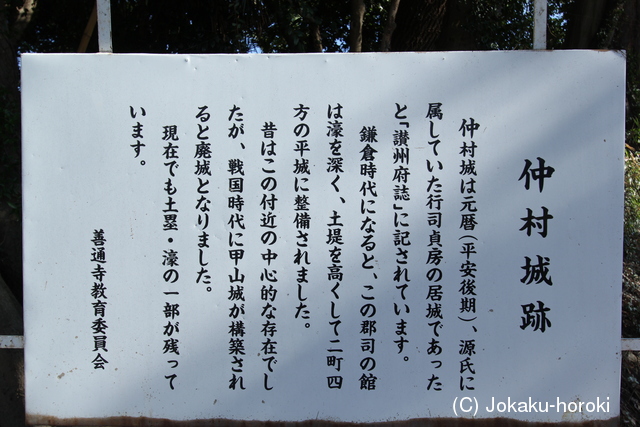 仲村城跡
仲村城は元暦(平安後期)、源氏に
属していた行司貞房の居城であった
と「讃州府誌」に記されています。
鎌倉時代になると、この郡司の館
は濠を深く、土堤を高くして二町四
方の平城に整備されました。
昔はこの付近の中心的な存在でし
たが、戦国時代に甲山城が構築され
ると廃城となりました。
現在でも土塁・濠の一部が残って
います。
善通寺教育委員会
(C) Jokaku-horoki